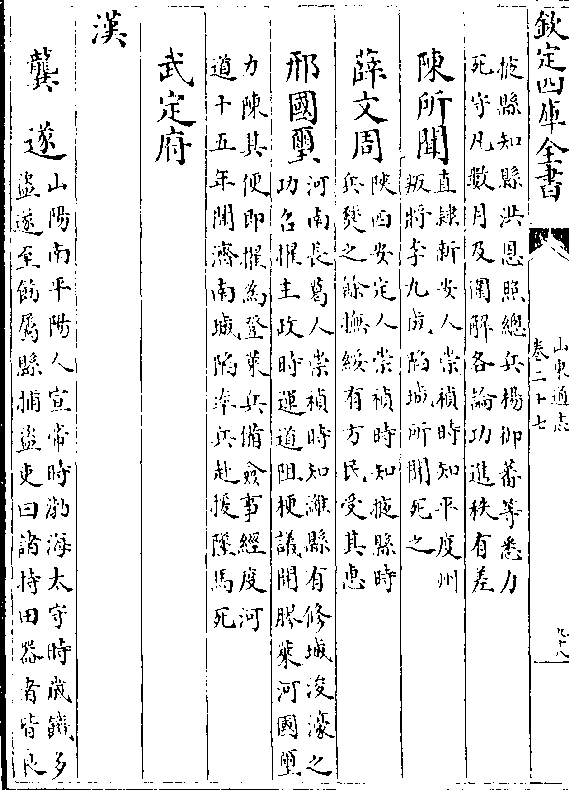 欽定四庫全書
山東通志
卷二十七
九十八
掖縣知縣洪恩照總兵楊御蕃等悉力
死守凡數月及圍解各論功進秩有差
陳所聞
直隸新安人崇禎時知平度州
叛將李九成陷城所聞死之
薛文周
陜西安定人崇禎時知掖縣時
兵燹之餘撫綏有方民受其惠
邢國璽
河南長葛人崇禎時知濰縣有修城浚濠之
功召擢主政時運道阻梗議開膠萊河國璽
力陳其便即擢為登萊兵備僉事經度河
道十五年聞濟南城陷率兵赴援墜馬死
武定府
漢
龔遂
山陽南平陽人宣帝時渤海太守時歲饑多
盜遂至飭屬縣捕盜吏曰諸持田器者皆良